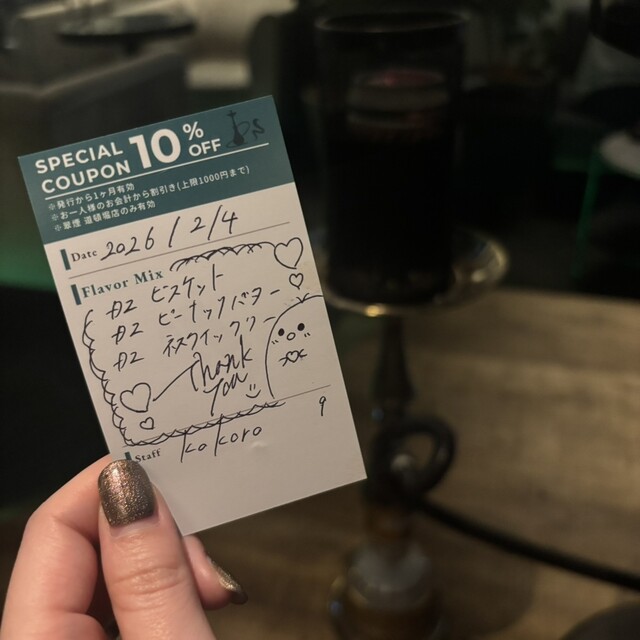 SPECIAL COUPON 10% OFF
※発行から1ヶ月有効
※お一人様のお会計から割引き(上限1000円まで)
※罩煙 道頓堀店のみ有効
Date 2026/2/4
Flavor Mix
AZ ビスケット
AZ ピーナッツバター
AZ ネスクイックリー
Thank
You
9
Staff kokoro